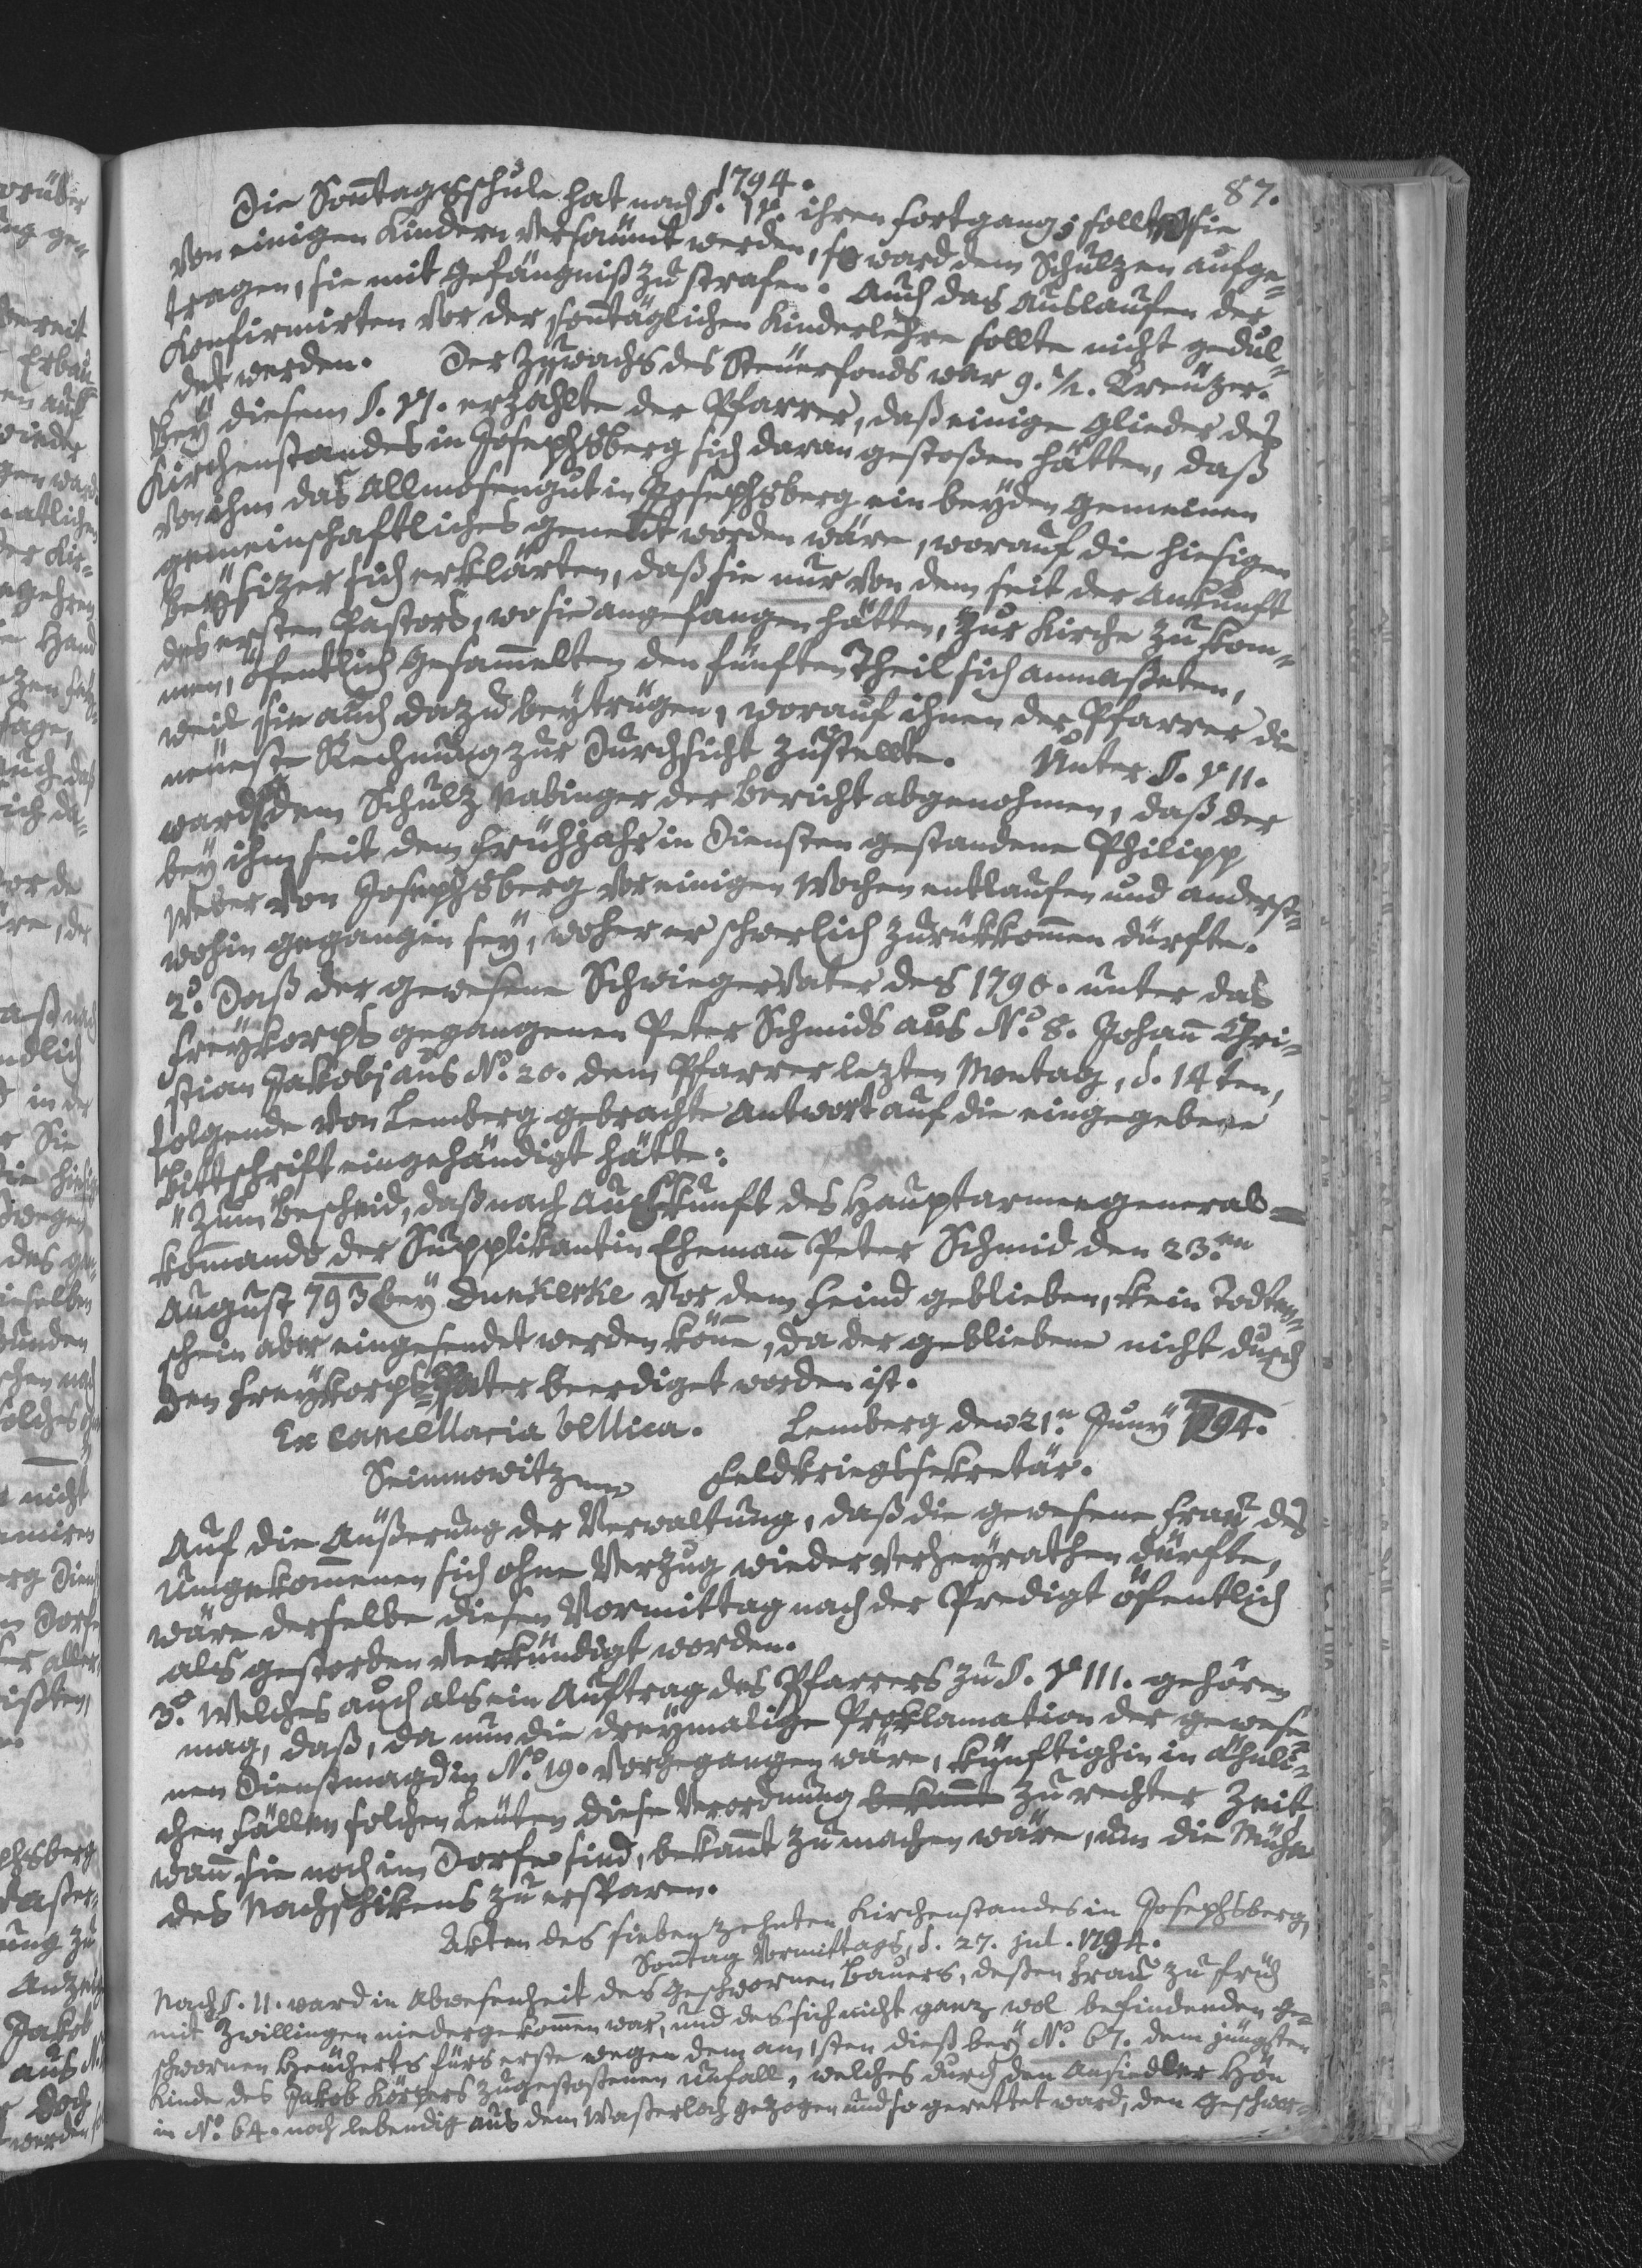 1794.
87.
Die Soñtagsschule hat nach §. IV. ihren fortgang; sollte sie
von einigen Kindern versäumt werden, so ward dem Schulzen aufge-
tragen, sie mit Gefängniß zu strafen. Auch das Auslaufen der
Konfirmirten vor der soñtäglichen Kinderlehre sollte nicht gedul-
det werden. Der Zuwachs des Steuerfonds war 9. 1/2. Kreuzer.
Bey diesem §. VI. erzählte der Pfarrer, daß einige Glieder des
Kirchenstandes in Josephsberg sich daran gestoßen hätten, daß
von ihm das Allmosengut in Josephsberg ein beyden Gemeinen
gemeinschaftliches genennt worden wäre, worauf die hiesigen
Beysizer sich erklärten, daß sie nur von dem seit der Ankunft
des ersten Pastors, wo sie angefangen hätten, zur Kirche zu kom-
men, öfentlich Gesam̄elten den fünften Theil sich anmaßeten,
weil sie auch dazu beytrügen, worauf ihnen der Pfarrer die
neueste Rechnung zur Durchsicht zustellte. Unter §. VII.
ward dem Schulz Nabinger der Bericht abgenohmen, daß der
bey ihm seit dem Frühjahr in Diensten gestandene Philipp
Weber von Josephsberg vor einigen Wochen entlaufen und anderst-
wohin gegangen sey, woher er schwerlich zurükkom̄en dürfte.
2º. Daß der gewesene Schwiegervater des 1790. unter das
Freykorps gegangenen Peter Schmids aus Nº 8. Johañ Chri-
stian Jakobj aus Nº. 20. dem Pfarrer lezten Montag, d. 14ten,
folgende von Lemberg gebrachte Antwort auf die eingegebene
Bittschrift eingehändigt hätte:
"Zum Bescheid, daß nach Auskunft des Hauptarmeegeneral-
kom̄ando der Supplikantin Ehemañ Peter Schmid den 23.en
August 793 bey Dunkerke vor dem Feind geblieben, kein Todten-
schein aber eingesendet werden köñe, da der gebliebene nicht durch
den Freykorps-Pater beerdiget worden ist.
Ex cancellaria bellica. Lemberg den 21n. Juny 1794.
Seimnowitz Feldkriegssekretär.
Auf die Äußerung der Verwaltung, daß die gewesene Frau des
Umgekom̄enen sich ohne Verzug wieder verheyrathen dürfte,
wäre derselbe diesen Vormittag nach der Predigt öfentlich
als gestorben verkündigt worden.
3º. Welches auch als ein Auftrag des Pfarrers zu §. VIII. gehören
mag, daß, da nun die dreymalige Proklamation der gewese-
nen Dienstmagd in Nº. 19. vorgegangen wäre, künftighin in ähnli-
chen Fällen solchen Leuten diese Verordnung bekañt zu rechter Zeit,
wañ sie noch im Dorfe sind, bekañt zu machen wäre, um die Mühe
des Nachschikens zu ersparen.
Akten des siebenzehnten Kirchenstandes in Josephsberg,
Soñtag Vormittags, d. 27. Jul. 1794.
Nach §. II. ward in Abwesenheit des Geschwornen Bauers, deßen Frau zu früh
mit Zwillingen niedergekom̄en war, und des sich nicht ganz wol befindenden Ge-
schwornen Heucherts fürs erste wegen dem am 1sten dieß bey Nº 67. dem jüngsten
Kinde des Jakob Körpers zugestoßenen Unfall, welches durch den Ansiedler Hön
in Nº. 64. noch lebendig aus dem Waßerloch gezogen und so gerettet ward, den Geschwor-